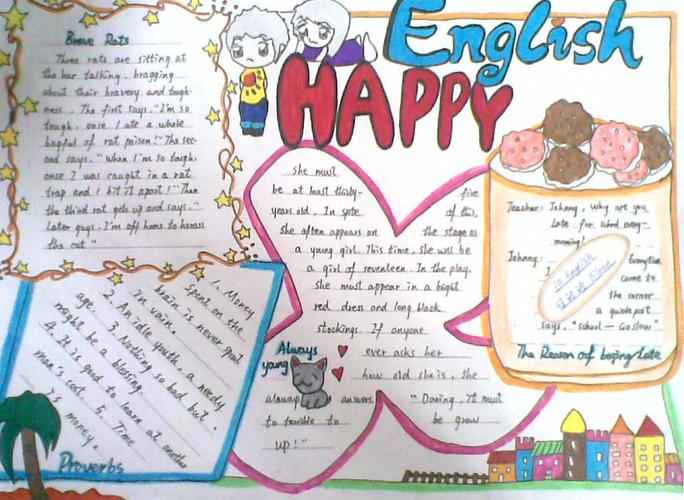 English
HAPPY
Brave Rats
Three rats are sitting at
the bar talking, bragging
about their bravery and tough-
ness. The first says, "I'm so
tough, once I ate a whole
bagful of rat poison!" The sec-
ond says, "When I'm so tough,
once I was caught in a rat
trap and I bit it apart!" Then
the third rat gets up and says, "
Later guys, I'm off home to harass
the cat."
She must
be at least thirty- five
years old. In spite of this,
she often appears on the stage as
a young girl. This time, she will be
a girl of seventeen. In the play,
she must appear in a bright
red dress and long black
stockings. If anyone
ever asks her
how old she is, she
always answers, "Darling, it must
to terrible to be grow
up!"
Always
yang
Teacher: Johnny, Why are you
late for
Johnny:
came to
the corner
a guidepost
says, "school — Go slow"
in English
The Reason of being Late
1. Money
spent on the
brain is never spent
in vain.
2. An idle youth, a needy
age. 3. Nothing so bad but
might be a blessing.
4. It is good to learn at another
man's cost. 5. Time
is money.
Proverbs